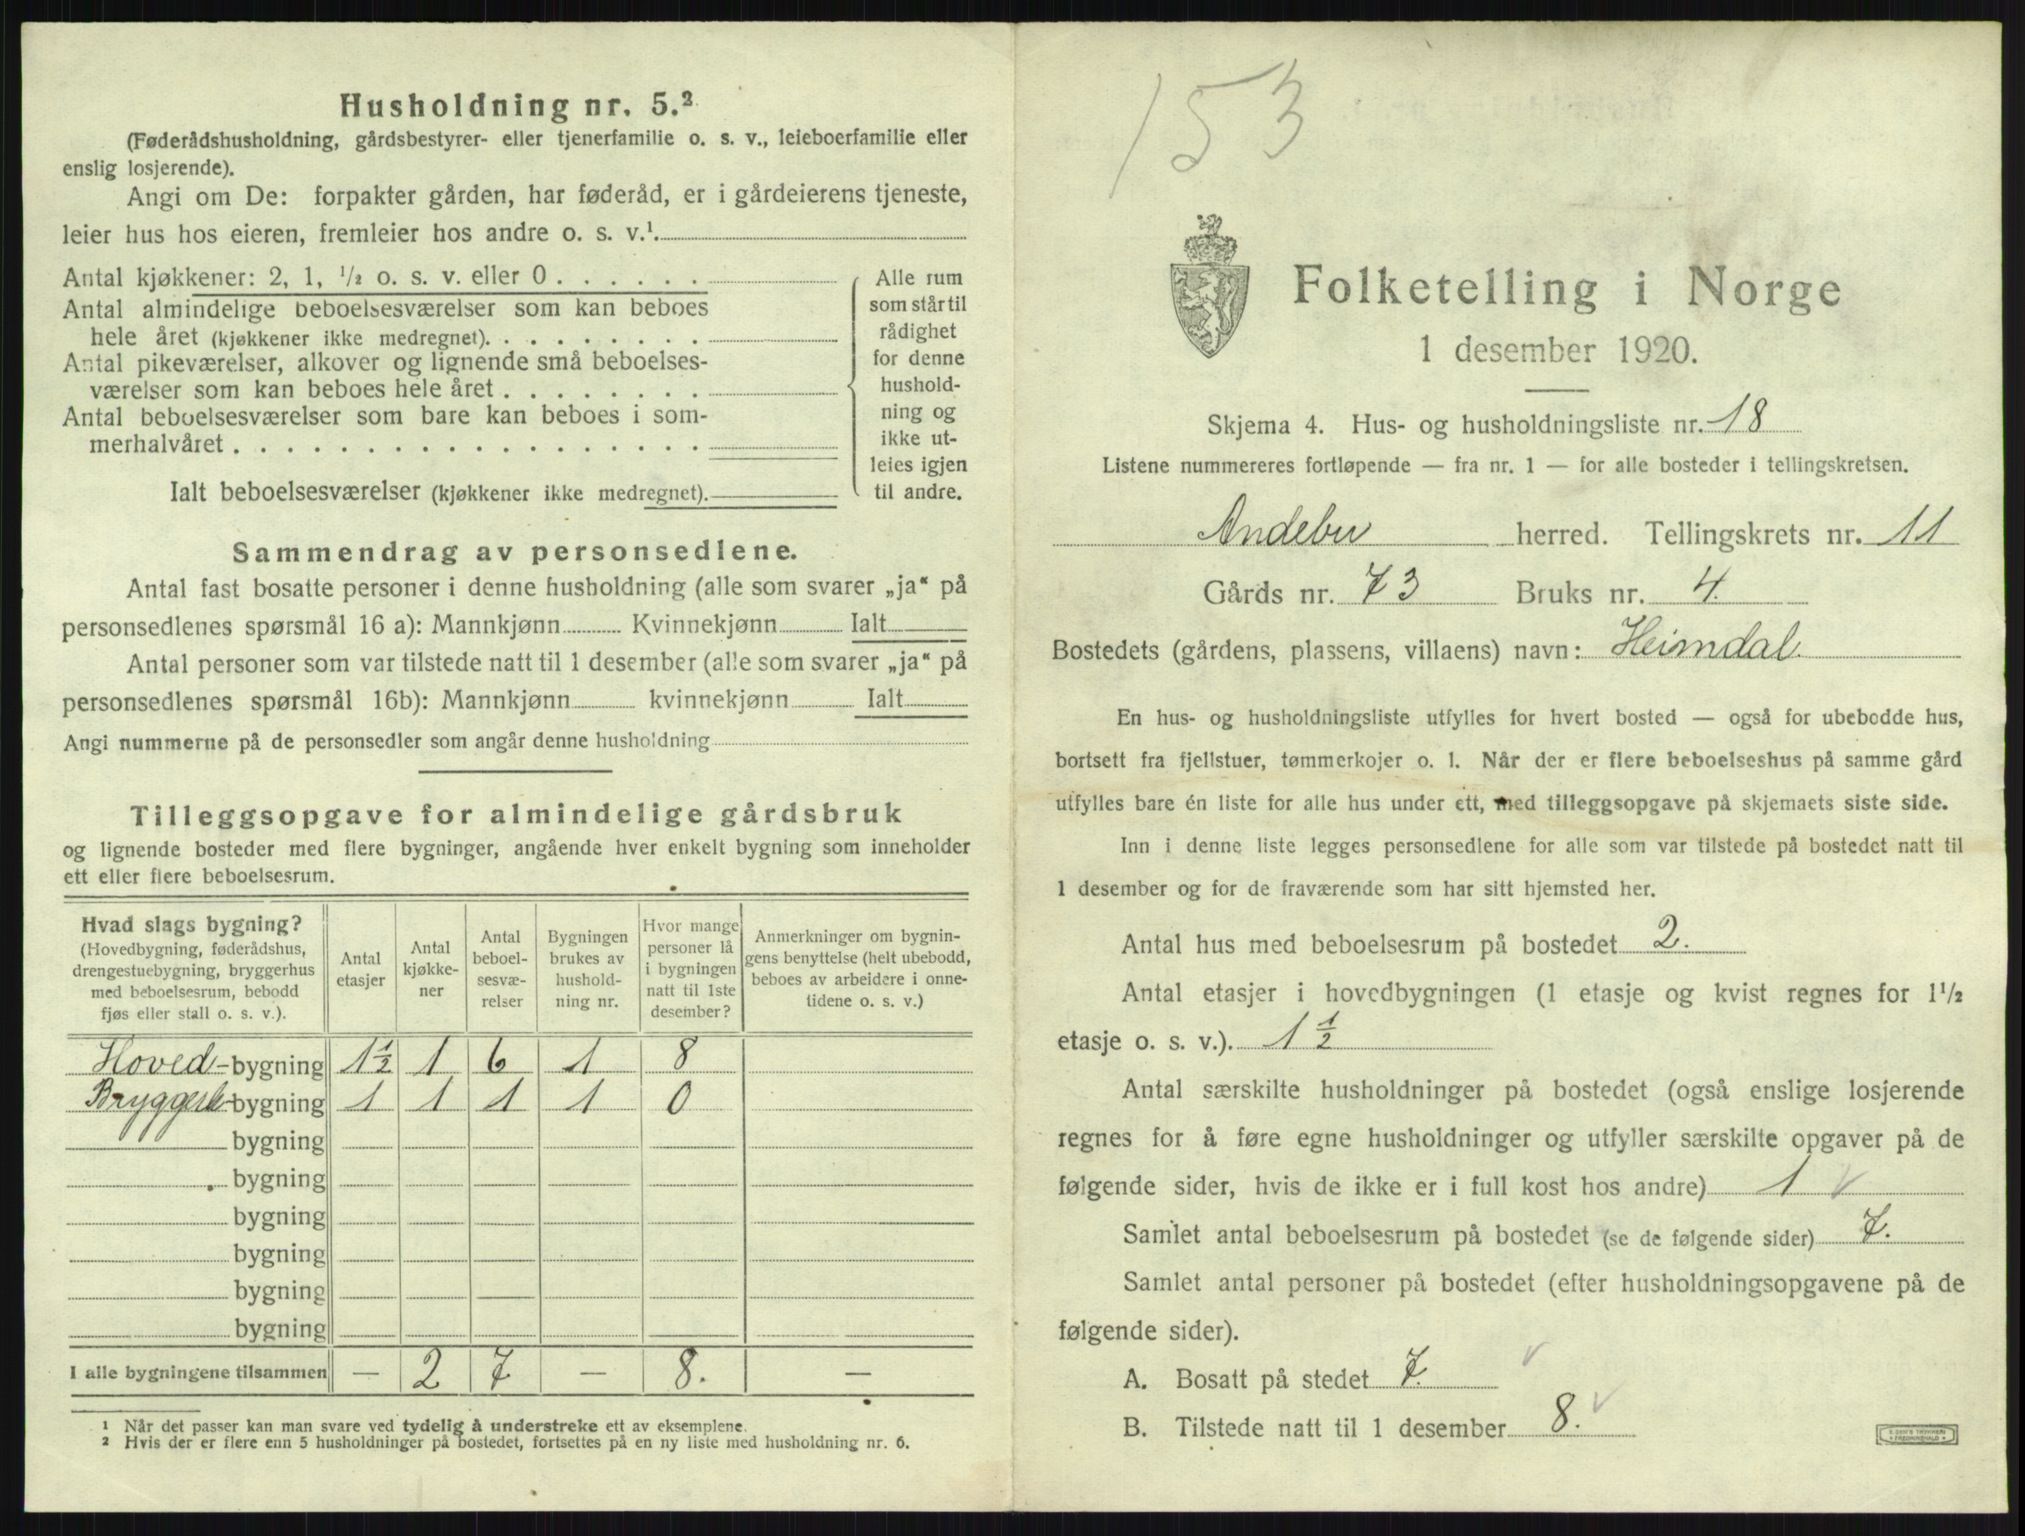 Husholdning nr. 5.²
(Føderådshusholdning, gårdsbestyrer- eller tjenerfamilie o. s. v., leieboerfamilie eller
enslig losjerende).
Angi om De: forpakter gården, har føderåd, er i gårdeierens tjeneste,
leier hus hos eieren, fremleier hos andre o. s. v.¹
Antal kjøkkener: 2, 1, ½ o. s. v. eller 0
Antal almindelige beboelsesværelser som kan beboes
hele året (kjøkkener ikke medregnet)
Antal pikeværelser, alkover og lignende små beboelses-
værelser som kan beboes hele året
Antal beboelsesværelser som bare kan beboes i som-
merhalvåret
Ialt beboelsesværelser (kjøkkener ikke medregnet)
Alle rum
som står til
rådighet
for denne
hushold-
ning og
ikke ut-
leies igjen
til andre.
Sammendrag av personsedlene.
Antal fast bosatte personer i denne husholdning (alle som svarer „ja“ på
personsedlenes spørsmål 16 a): Mannkjønn Kvinnekjønn Ialt
Antal personer som var tilstede natt til 1 desember (alle som svarer „ja“ på
personsedlenes spørsmål 16b): Mannkjønn kvinnekjønn Ialt
Angi nummerne på de personsedler som angår denne husholdning
Tilleggsopgave for almindelige gårdsbruk
og lignende bosteder med flere bygninger, angående hver enkelt bygning som inneholder
ett eller flere beboelsesrum.
Hvad slags bygning?
(Hovedbygning, føderådshus,
drengestuebygning, bryggerhus
med beboelsesrum, bebodd
fjøs eller stall o. s. v.).
Antal
etasjer
Antal
kjøkke-
ner
Antal
beboel-
sesvæ-
relser
Bygningen
brukes av
hushold-
ning nr.
Hvor mange
personer lå
i bygningen
natt til 1ste
desember?
Anmerkninger om bygnin-
gens benyttelse (helt ubebodd,
beboes av arbeidere i onne-
tidene o. s. v.)
Hoved-bygning 1½ 1 6 1 8
bygning 1 1 1 1 0
bygning
bygning
bygning
bygning
bygning
bygning
I alle bygningene tilsammen — 2 7 — 8. —
¹ Når det passer kan man svare ved tydelig å understreke ett av eksemplene.
² Hvis der er flere enn 5 husholdninger på bostedet, fortsettes på en ny liste med husholdning nr. 6.
153
Folketelling i Norge
1 desember 1920.
Skjema 4. Hus- og husholdningsliste nr. 18
Listene nummereres fortløpende — fra nr. 1 — for alle bosteder i tellingskretsen.
Andebu herred. Tellingskrets nr. 11
Gårds nr. 73 Bruks nr. 4.
Bostedets (gårdens, plassens, villaens) navn: Heimdal.
En hus- og husholdningsliste utfylles for hvert bosted — også for ubebodde hus,
bortsett fra fjellstuer, tømmerkojer o. l. Når der er flere beboelseshus på samme gård
utfylles bare én liste for alle hus under ett, med tilleggsopgave på skjemaets siste side.
Inn i denne liste legges personsedlene for alle som var tilstede på bostedet natt til
1 desember og for de fraværende som har sitt hjemsted her.
Antal hus med beboelsesrum på bostedet 2.
Antal etasjer i hovedbygningen (1 etasje og kvist regnes for 1½
etasje o. s. v.). 1½
Antal særskilte husholdninger på bostedet (også enslige losjerende
regnes for å føre egne husholdninger og utfyller særskilte opgaver på de
følgende sider, hvis de ikke er i full kost hos andre) 1
Samlet antal beboelsesrum på bostedet (se de følgende sider) 7.
Samlet antal personer på bostedet (efter husholdningsopgavene på de
følgende sider).
A. Bosatt på stedet 7.
B. Tilstede natt til 1 desember 8.